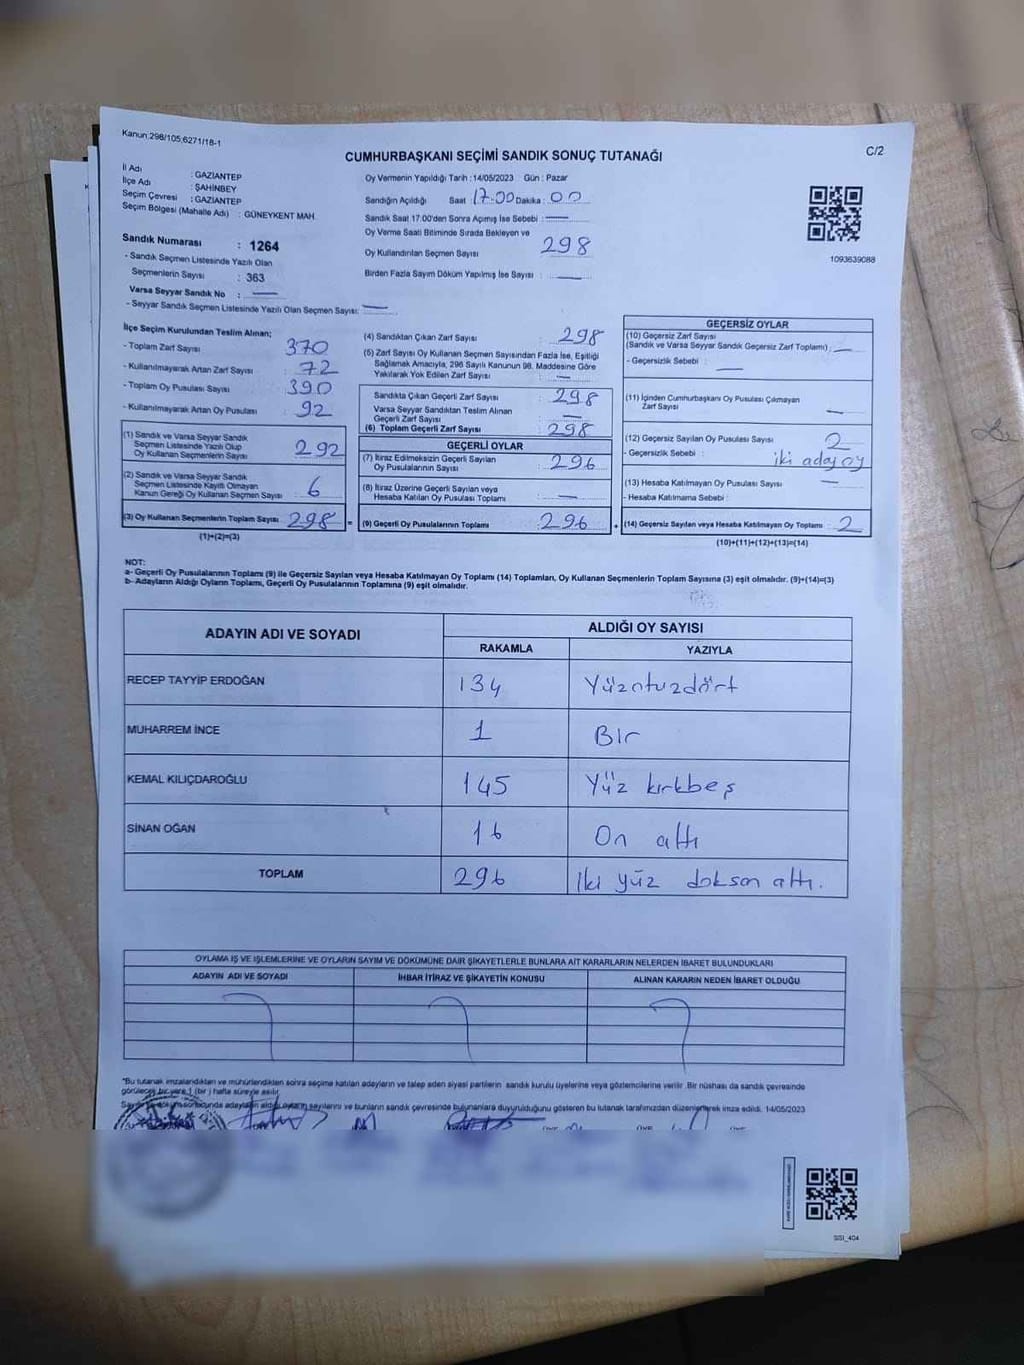 Kanun:298/105,6271/18-1
C/2
CUMHURBAŞKANI SEÇİMİ SANDIK SONUÇ TUTANAĞI
İl Adı : GAZIANTEP
İlçe Adı : ŞAHİNBEY
Seçim Çevresi : GAZIANTEP
Seçim Bölgesi (Mahalle Adı) : GÜNEYKENT MAH.
Sandık Numarası : 1264
- Sandık Seçmen Listesinde Yazılı Olan
Seçmenlerin Sayısı : 363
Varsa Seyyar Sandık No : —
- Seyyar Sandık Seçmen Listesinde Yazılı Olan Seçmen Sayısı: —
Oy Vermenin Yapıldığı Tarih : 14/05/2023 Gün : Pazar
Sandığın Açıldığı Saat : 17.00 Dakika : 00
Sandık Saat 17.00'den Sonra Açımış İse Sebebi : —
Oy Verme Saati Bitiminde Sırada Bekleyen ve
Oy Kullandırılan Seçmen Sayısı 298
Birden Fazla Sayım Döküm Yapılmış İse Sayısı : —
1093639088
İlçe Seçim Kurulundan Teslim Alınan;
- Toplam Zarf Sayısı 370
- Kullanılmayarak Artan Zarf Sayısı : 72
- Toplam Oy Pusulası Sayısı 390
- Kullanılmayarak Artan Oy Pusulası : 92
(1) Sandık ve Varsa Seyyar Sandık
Seçmen Listesinde Yazılı Olup
Oy Kullanan Seçmenlerin Sayısı : 292
(2) Sandık ve Varsa Seyyar Sandık
Seçmen Listesinde Kayıtlı Olmayan
Kanun Gereği Oy Kullanan Seçmen Sayısı : 6
(3) Oy Kullanan Seçmenlerin Toplam Sayısı : 298 =
(1)+(2)=(3)
(4) Sandıktan Çıkan Zarf Sayısı : 298
(5) Zarf Sayısı Oy Kullanan Seçmen Sayısından Fazla İse, Eşitliği
Sağlamak Amacıyla, 298 Sayılı Kanunun 98. Maddesine Göre
Yakılarak Yok Edilen Zarf Sayısı : —
Sandıkta Çıkan Geçerli Zarf Sayısı : 298
Varsa Seyyar Sandıktan Teslim Alınan
Geçerli Zarf Sayısı : —
(6) Toplam Geçerli Zarf Sayısı : 298
GEÇERLİ OYLAR
(7) İtiraz Edilmeksizin Geçerli Sayılan
Oy Pusulalarının Sayısı : 296
(8) İtiraz Üzerine Geçerli Sayılan veya
Hesaba Katılan Oy Pusulası Toplamı : —
(9) Geçerli Oy Pusulalarının Toplamı : 296 +
GEÇERSİZ OYLAR
(10) Geçersiz Zarf Sayısı
(Sandık ve Varsa Seyyar Sandık Geçersiz Zarf Toplamı) : —
- Geçersizlik Sebebi : —
(11) İçinden Cumhurbaşkanı Oy Pusulası Çıkmayan
Zarf Sayısı : —
(12) Geçersiz Sayılan Oy Pusulası Sayısı : 2
- Geçersizlik Sebebi : iki aday oy
(13) Hesaba Katılmayan Oy Pusulası Sayısı : —
- Hesaba Katılmama Sebebi :
(14) Geçersiz Sayılan veya Hesaba Katılmayan Oy Toplamı : 2
(10)+(11)+(12)+(13)=(14)
NOT:
a- Geçerli Oy Pusulalarının Toplamı (9) ile Geçersiz Sayılan veya Hesaba Katılmayan Oy Toplamı (14) Toplamları, Oy Kullanan Seçmenlerin Toplam Sayısına (3) eşit olmalıdır. (9)+(14)=(3)
b- Adayların Aldığı Oyların Toplamı, Geçerli Oy Pusulalarının Toplamına (9) eşit olmalıdır.
ADAYIN ADI VE SOYADI ALDIĞI OY SAYISI
RAKAMLA YAZIYLA
RECEP TAYYİP ERDOĞAN 134 Yüzotuzdört
MUHARREM İNCE 1 Bir
KEMAL KILIÇDAROĞLU 145 Yüz kırkbeş
SİNAN OĞAN 16 On altı
TOPLAM 296 İki yüz doksan altı.
OYLAMA İŞ VE İŞLEMLERİNE VE OYLARIN SAYIM VE DÖKÜMÜNE DAİR ŞİKAYETLERLE BUNLARA AİT KARARLARIN NELERDEN İBARET BULUNDUKLARI
ADAYIN ADI VE SOYADI İHBAR İTİRAZ VE ŞİKAYETİN KONUSU ALINAN KARARIN NEDEN İBARET OLDUĞU
"Bu tutanak imzalandıktan ve mühürlendikten sonra seçime katılan adayların ve talep eden siyasi partilerin sandık kurulu üyelerine veya gözlemcilerine verilir. Bir nüshası da sandık çevresinde
görülecek bir yere 1 (bir ) hafta süreyle asılır.
sonucunda adayların aldığı oyların sayılarını ve bunların sandık çevresinde bulunanlara duyurulduğunu gösteren bu tutanak tarafımızdan düzenlenerek imza edildi. 14/05/2023
SISI_404